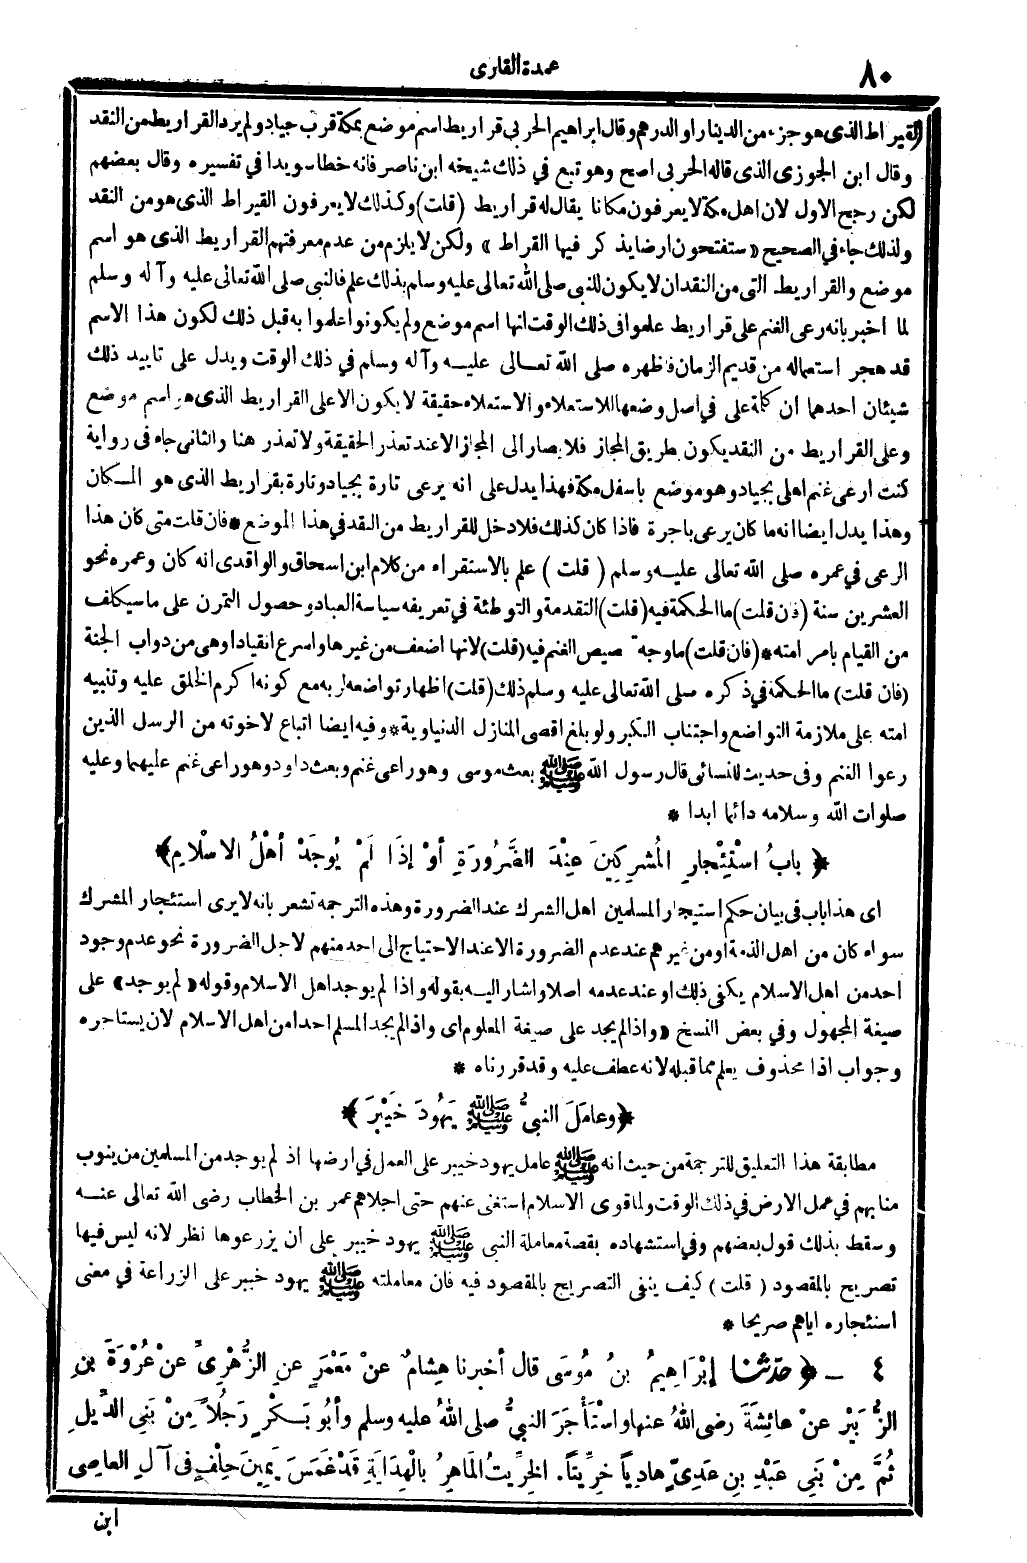 ٨٠
عمدة القارى
القيراط الذى هو جزء من الدينار او الدرهم وقال ابراهيم الحربى قراريط اسم موضع بمكة قرب جياد ولم يرد القراريط من النقد
وقال ابن الجوزى الذى قاله الحربى اصح وهو تبع في ذلك شيخه ابن ناصر فانه خطا سويدا في تفسيره وقال بعضهم
لكن رجح الاول لان اهل مكة لا يعرفون مكانا يقال له قراريط (قلت) وكذلك لا يعرفون القيراط الذى هو من النقد
ولذلك جاء في الصحيح «ستفتحون ارضا يذكر فيها القراط» ولكن لا يلزم من عدم معرفتهم القراريط الذى هو اسم
موضع والقراريط التى من النقد ان لا يكون للنبى صلى الله تعالى عليه وسلم بذلك علم فالنبى صلى الله تعالى عليه وآله وسلم
لما اخبر بانه رعى الغنم على قراريط علموا فى ذلك الوقت انها اسم موضع ولم يكونوا علموا به قبل ذلك لكون هذا الاسم
قد هجر استعماله من قديم الزمان فاظهره صلى الله تعالى عليه وآله وسلم في ذلك الوقت ويدل على تاييد ذلك
شيئان احدهما ان كلمة على في اصل وضعها للاستعلاء والاستعلاء حقيقة لا يكون الا على القراريط الذى هو اسم موضع
وعلى القراريط من النقد يكون بطريق المجاز فلا يصار الى المجاز الا عند تعذر الحقيقة ولا تعذر هنا والثانى جاء فى رواية
كنت ارعى غنم اهلى بجياد وهو موضع باسفل مكة فهذا يدل على انه يرعى تارة بجياد وتارة بقراريط الذى هو المكان
وهذا يدل ايضا انه ما كان يرعى باجرة فاذا كان كذلك فلا دخل للقراريط من النقد في هذا الموضع * فان قلت متى كان هذا
الرعى في عمره صلى الله تعالى عليه وسلم (قلت) علم بالاستقراء من كلام ابن اسحاق والواقدى انه كان وعمره نحو
العشرين سنة (فان قلت) ما الحكمة فيه (قلت) التقدمة والتوطئة في تعريفه سياسة العباد وحصول التمرن على ما سيكلف
من القيام بامر امته * (فان قلت) ما وجه تخصيص الغنم فيه (قلت) لانها اضعف من غيرها واسرع انقيادا وهى من دواب الجنة
(فان قلت) ما الحكمة في ذكره صلى الله تعالى عليه وسلم ذلك (قلت) اظهار تواضعه لربه مع كونه اكرم الخلق عليه وتنبيه
امته على ملازمة التواضع واجتناب الكبر ولو بلغ اقصى المنازل الدنياوية * وفيه ايضا اتباع لاخوته من الرسل الذين
رعوا الغنم وفى حديث للنسائى قال رسول الله ﷺ بعث موسى وهو راعى غنم وبعث داود وهو راعى غنم عليهما وعليه
صلوات الله وسلامه دائما ابدا *
﴿ بابُ اسْتِئْجارِ المُشْرِكِينَ عِنْدَ الضَّرُورَةِ أوْ إذَا لَمْ يُوجَدْ أهْلُ الاسْلاَمِ ﴾
اى هذا باب فى بيان حكم استيجار المسلمين اهل الشرك عند الضرورة وهذه الترجمة تشعر بانه لا يرى استئجار المشرك
سواء كان من اهل الذمة او من غيرهم عند عدم الضرورة الا عند الاحتياج الى احد منهم لاجل الضرورة نحو عدم وجود
احد من اهل الاسلام يكفى ذلك او عند عدمه اصلا واشار اليه بقوله واذا لم يوجد اهل الاسلام وقوله «لم يوجد» على
صيغة المجهول وفي بعض النسخ «واذا لم يجد على صيغة المعلوم اى واذا لم يجد المسلم احدا من اهل الاسلام لان يستاجره
وجواب اذا محذوف يعلم مما قبله لانه عطف عليه وقد قررناه *
﴿ وعامَلَ النبيُّ ﷺ يَهُودَ خَيْبَرَ ﴾
مطابقة هذا التعليق للترجمة من حيث انه ﷺ عامل يهود خيبر على العمل في ارضها اذ لم يوجد من المسلمين من ينوب
منابهم في عمل الارض في ذلك الوقت ولما قوى الاسلام استغنى عنهم حتى اجلاهم عمر بن الخطاب رضى الله تعالى عنه
وسقط بذلك قول بعضهم وفي استشهاده بقصة معاملة النبى ﷺ يهود خيبر على ان يزرعوها نظر لانه ليس فيها
تصريح بالمقصود (قلت) كيف ينفى التصريح بالمقصود فيه فان معاملته ﷺ يهود خيبر على الزراعة في معنى
استئجاره اياهم صريحا *
٤ - ﴿ حدّثنا إبْرَاهِيمُ بنُ مُوسَى قال أخبرنا هِشامٌ عنْ مَعْمَرٍ عنِ الزُّهْرِيِّ عنْ عُرْوَةَ بنِ
الزُّبَيْرِ عنْ عائِشَةَ رضى اللهُ عنها واسْتَأْجَرَ النبيُّ صلى اللهُ عليه وسلم وأبُو بَكْرٍ رَجُلاً مِنْ بَنِي الدِّيلِ
ثُمَّ مِنْ بَنِي عَبْدِ بنِ عَدِيٍّ هادِياً خِرِّيتاً. الخِرِّيتُ المَاهِرُ بالْهِدَايَةِ قَدْ غَمَسَ يَمِينَ حِلْفٍ فى آلِ العاصِى
ابن